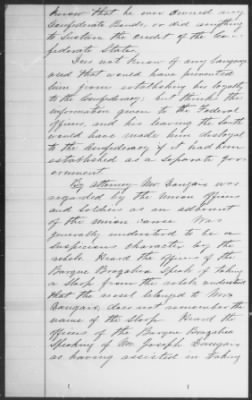 know that he ever owned any
Confederate Bonds, or did anything
to Sustain the credit of the Con-
federate States.
Does not know of any language
used that would have prevented
him from establishing his loyalty
to the Confederacy; but thinks the
information given to the Federal
officers, and his leaving the South
would have made him disloyal
to the Confederacy if it had been
established as a separate gov-
ernment
By attorney Mr. was
regarded by the Union officers
and Soldiers as an adherent
of the Union cause Was
generally understood to be a
suspicious character by the
rebels. Heard the officers of the
Barque Brazaliea Speak of taking
a Sloop from the rebels, understood
that the vessel belonged to Mrs
does not remember the
name of the Sloop Heard the
officers of the Barque Brazaliea
Speaking of Mr Joseph
as having assisted in taking